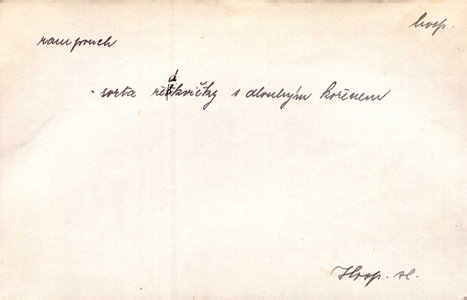 hosp.
rampouch
- sorta ředkvičky s dlouhým kořenem
Hosp. sl.